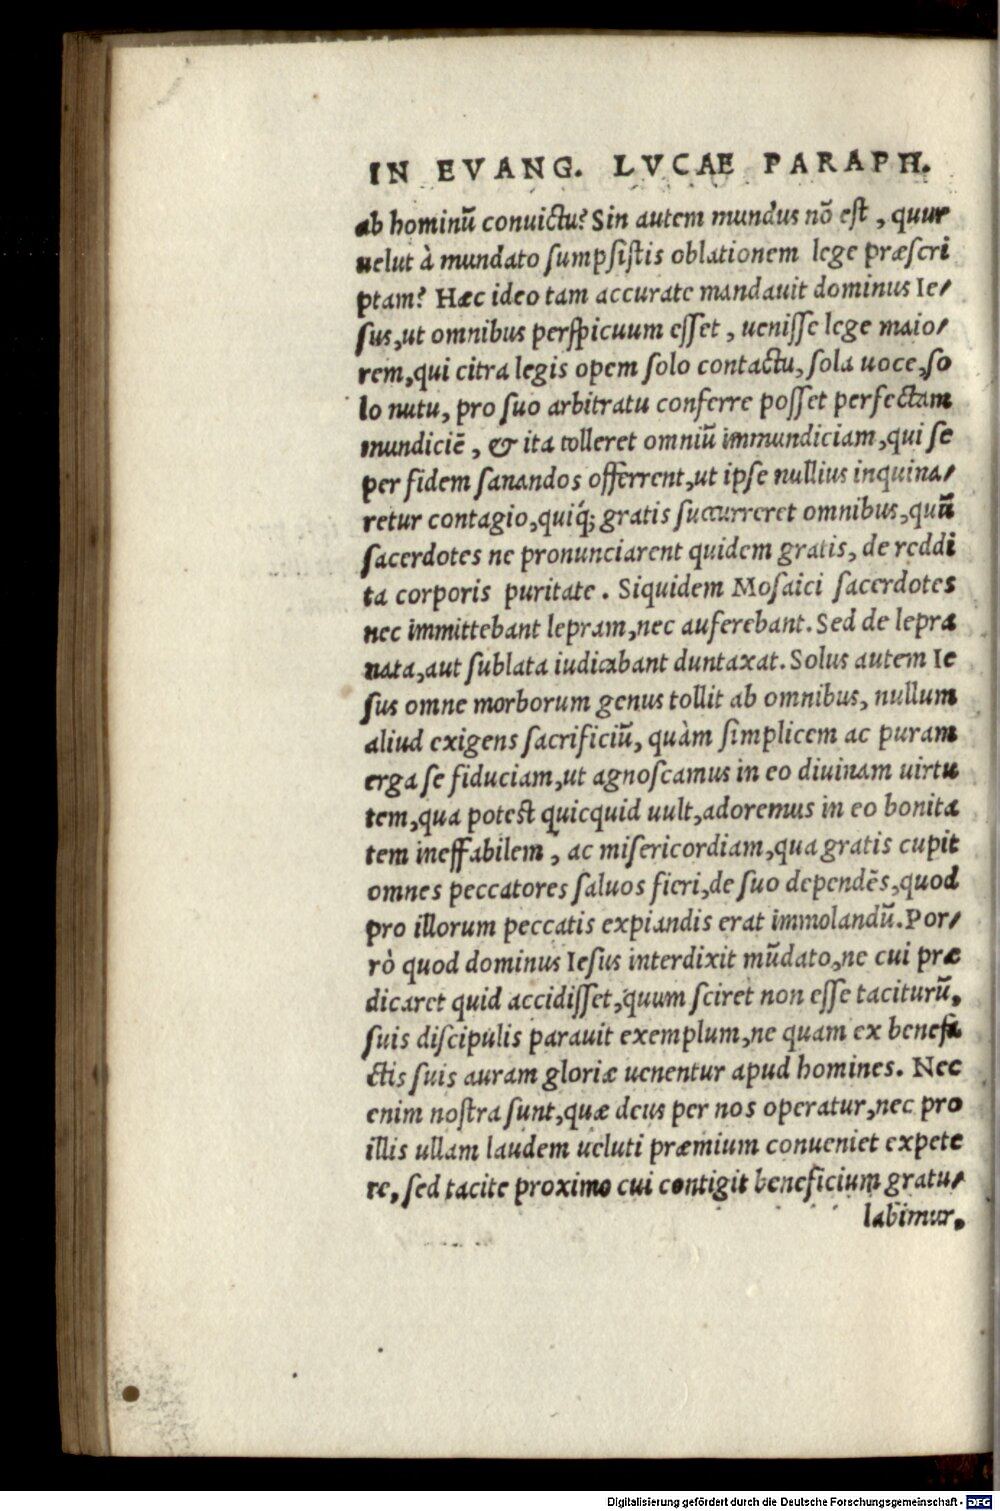 IN EVANG. LVCAE PARAPH.
ab hominū convictu? Sin autem mundus nō est, quur
uelut à mundato sumpsistis oblationem lege præscri
ptam? Hæc ideo tam accurate mandauit dominus Ie/
sus, ut omnibus perspicuum esset, uenisse lege maio/
rem, qui citra legis opem solo contactu, sola uoce, so
lo nutu, pro suo arbitratu conferre posset perfectam
mundiciē, & ita tolleret omniū immundiciam, qui se
per fidem sanandos offerrent, ut ipse nullius inquina/
retur contagio, quiq́; gratis succurreret omnibus, quū
sacerdotes ne pronunciarent quidem gratis, de reddi
ta corporis puritate. Siquidem Mosaici sacerdotes
nec immittebant lepram, nec auferebant. Sed de lepra
nata, aut sublata iudicabant duntaxat. Solus autem Ie
sus omne morborum genus tollit ab omnibus, nullum
aliud exigens sacrificiū, quàm simplicem ac puram
erga se fiduciam, ut agnoscamus in eo diuinam uirtu
tem, qua potest quicquid uult, adoremus in eo bonita
tem ineffabilem, ac misericordiam, qua gratis cupit
omnes peccatores saluos fieri, de suo dependēs, quod
pro illorum peccatis expiandis erat immolandū. Por/
rò quod dominus Iesus interdixit mūdato, ne cui præ
dicaret quid accidisset, quum sciret non esse taciturū,
suis discipulis parauit exemplum, ne quam ex benefa
ctis suis auram gloriæ uenentur apud homines. Nec
enim nostra sunt, quæ deus per nos operatur, nec pro
illis ullam laudem ueluti præmium conueniet expete
re, sed tacite proximo cui contigit beneficium gratu/
labimur.
Digitalisierung gefördert durch die Deutsche Forschungsgemeinschaft - DFG